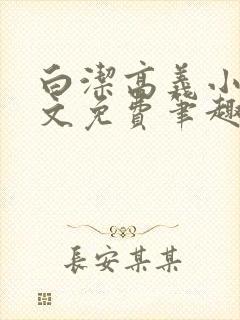 白潔高義小
文免費筆趣
長安某某